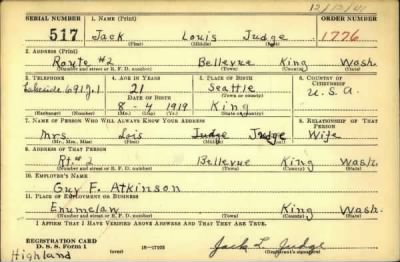 12/12/41
SERIAL NUMBER 1. NAME (Print) ORDER NUMBER
517 Jack Louis Judge 1776
(First) (Middle) (Last)
2. ADDRESS (Print)
Route #2 Bellevue King Wash.
(Number and street or R. F. D. number) (Town) (County) (State)
3. TELEPHONE 4. AGE IN YEARS 5. PLACE OF BIRTH 6. COUNTRY OF CITIZENSHIP
Lakeside 691J1 21 Seattle
DATE OF BIRTH (Town or county) U.S.A.
8-4 1919 King
(Exchange) (Number) (Mo.) (Day) (Yr.) (State or country)
7. NAME OF PERSON WHO WILL ALWAYS KNOW YOUR ADDRESS 8. RELATIONSHIP OF THAT PERSON
Mrs Lois Judge Judge Wife
(Mr., Mrs., Miss) (First) (Middle) (Last)
9. ADDRESS OF THAT PERSON
Rt. #2 Bellevue King Wash.
(Number and street or R. F. D. number) (Town) (County) (State)
10. EMPLOYER'S NAME
Guy F. Atkinson
11. PLACE OF EMPLOYMENT OR BUSINESS
Enumclaw King Wash.
(Number and street or R. F. D. number) (Town) (County) (State)
I AFFIRM THAT I HAVE VERIFIED ABOVE ANSWERS AND THAT THEY ARE TRUE.
REGISTRATION CARD
D. S. S. Form 1 (over) 16-17105 Jack L. Judge
(Registrant's signature)
Highland